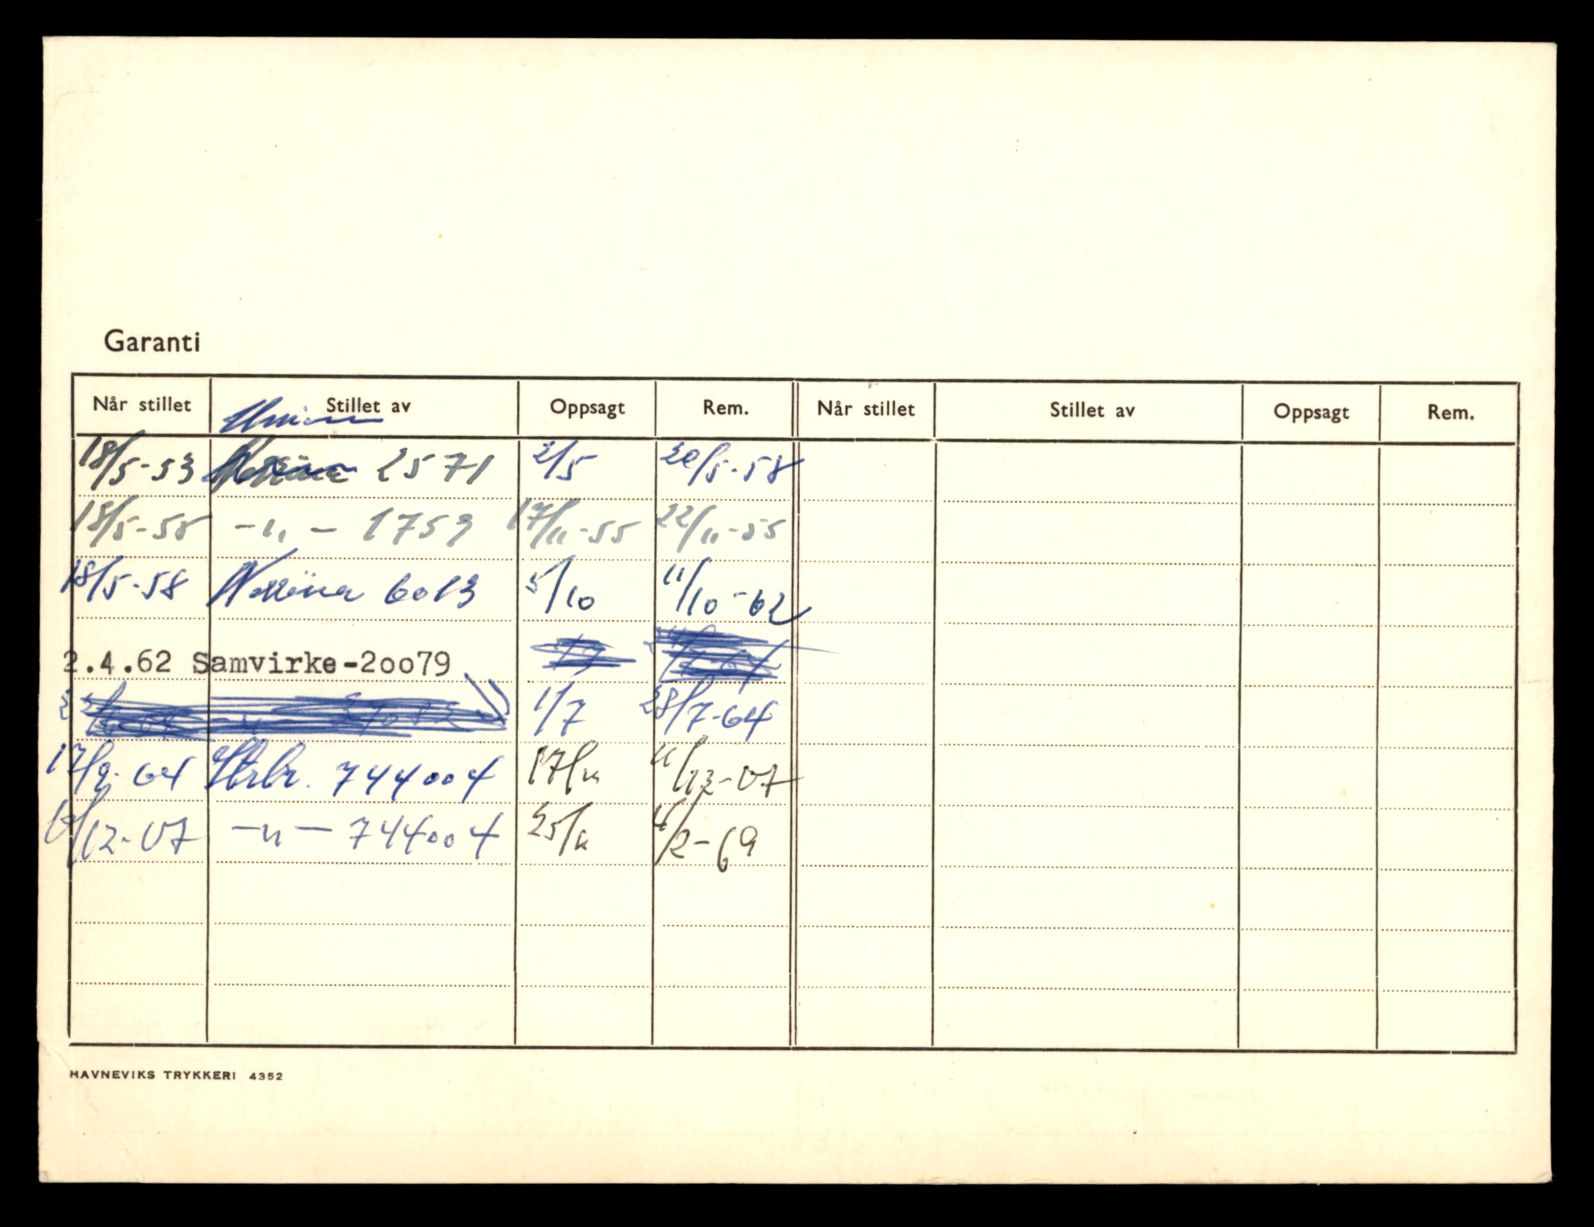 Garanti
Når stillet Stillet av Oppsagt Rem. Når stillet Stillet av Oppsagt Rem.
18/5-53 2571 2/5 20/5-58
18/5-55 -"- 1753 17/11-55 22/11-55
18/5-58 6013 5/10 11/10-62
2.4.62 Samvirke-20079
1/7 28/7-64
17/9-64 Storbr. 744004 17/11 11/12-67
-"- 744004 25/11 /2-69
HAVNEVIKS TRYKKERI 4352